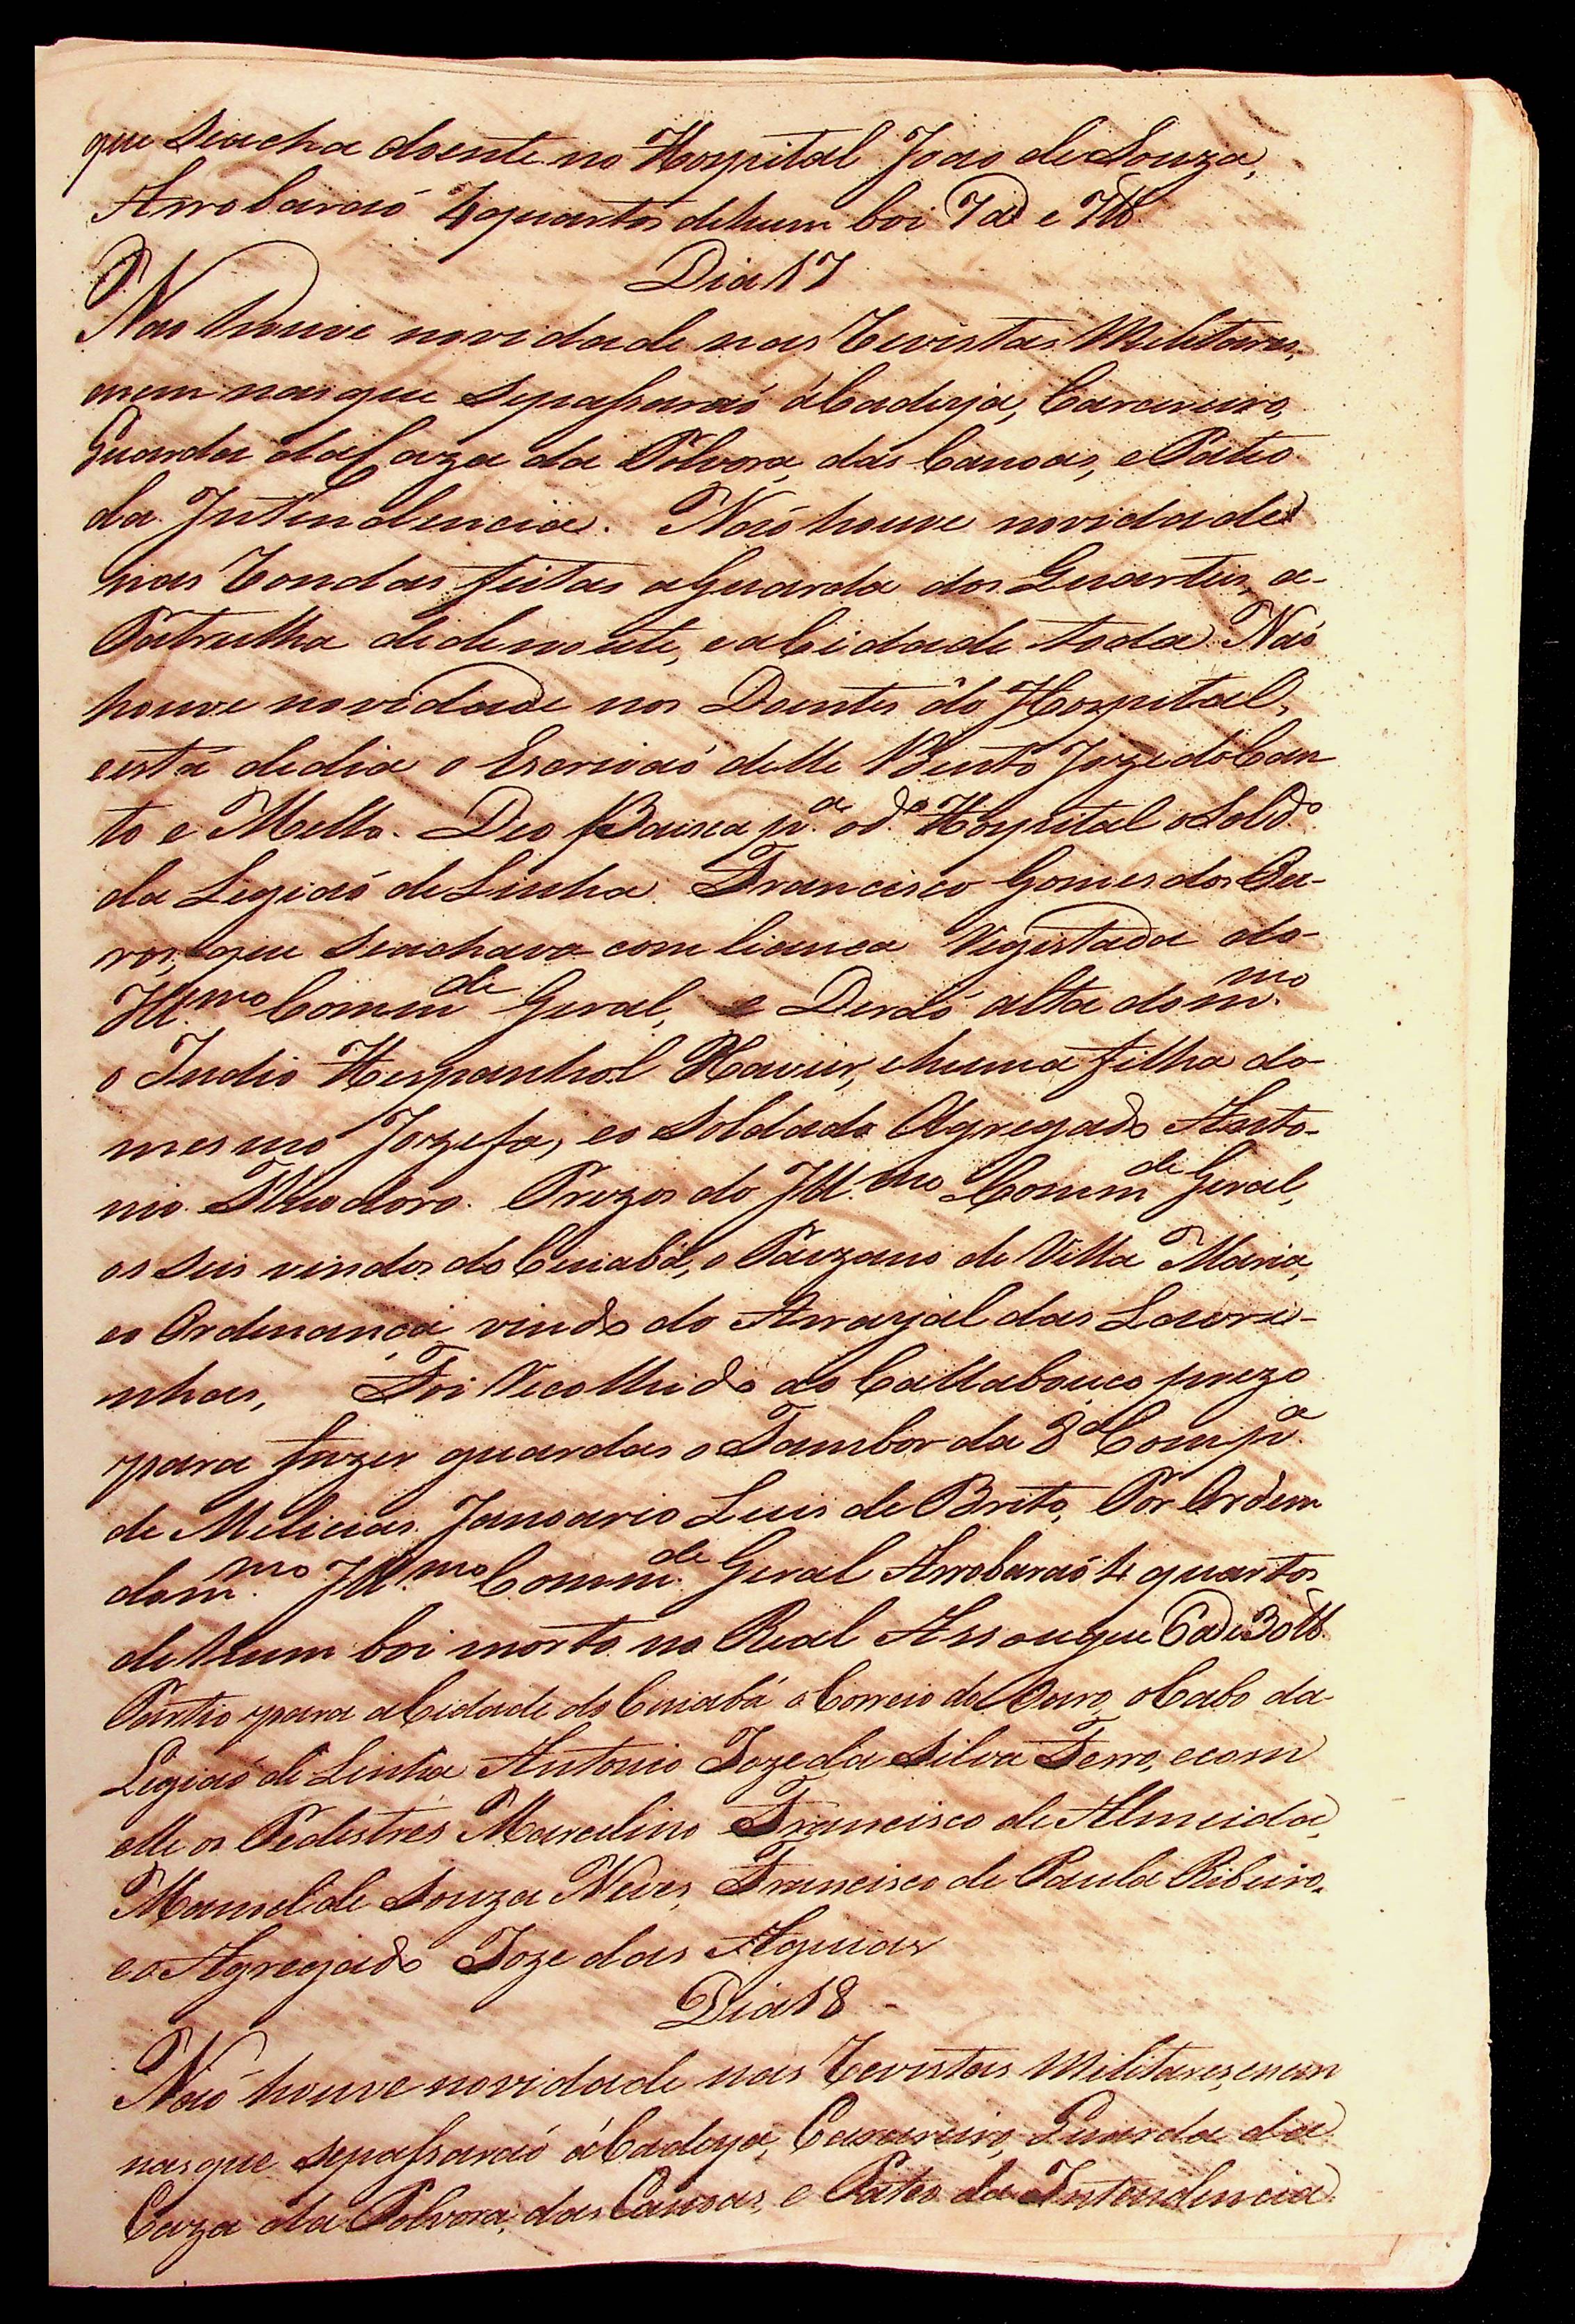 que seacha doente no Hospital Joao de Souza,
Arrobaraó 4 quartos dehum boi 7@ e 7 lb
Dia 17
Nao houve novidade nas Revistas Melitares,
nem nas que sepassaraó á Cadeya, Carcereiro,
Guarda da Caza da Polvora, das Canoas, e Pateo
da Intendencia. Naó houve novidade
nas Rondas feitas a Guarda dos Quarteis, a-
Patrulha dedenoute, e a Cidade toda. Naó
houve novidade nos Doentes do Hospital,
está dedia o Escrivaó delle Bento Joze do Can
to e Mello. Deo Baixa p.ª od.º Hospital o Sold.º
da Legiaó de Linha Francisco Gomes dos Ou-
ros, que seachava com licença Registada do-
Ill.mo Comm.de Geral, e Deraó alta do m.mo
o Indio Hespanhol Xavier, ehuma filha do-
mesmo Jozefa, eo Soldado Agregado Anto-
nio Theodoro. Prezos do Ill.mo Comm.de Geral,
os seis vindos do Cuiabá, o Paizano de Villa Maria,
eo Ordenança vindo do Arrayal das Lavri-
nhas, Foi Recolhido ao Callabouço prezo
para fazer guardas o Tambor da 8ª Comp.ª
de Melicias Januario Luis de Brito, Por Ordem
dom.mo Ill.mo Comm.de Geral Arrobaraó 4 quartos
de hum boi morto no Real Assougue 6@ e 30 lb.
Partio para a Cidade do Cuiabá o Correio do Ouro, o Cabo da
Legiaó de Linha Antonio Joze da Silva Ferro, e com
elle os Pedestres Marcelino Francisco de Almeida,
Manoel de Souza Neves, Francisco de Paula Ribeiro,
eo Agregado Joze das Aguias
Dia 18
Naó houve novidade nas Revistas Militares, enem
nas que sepassaraó á Cadeya, Carcereiro, Guarda da
Caza da Polvora, das Canoas, e Pateo da Intendencia.